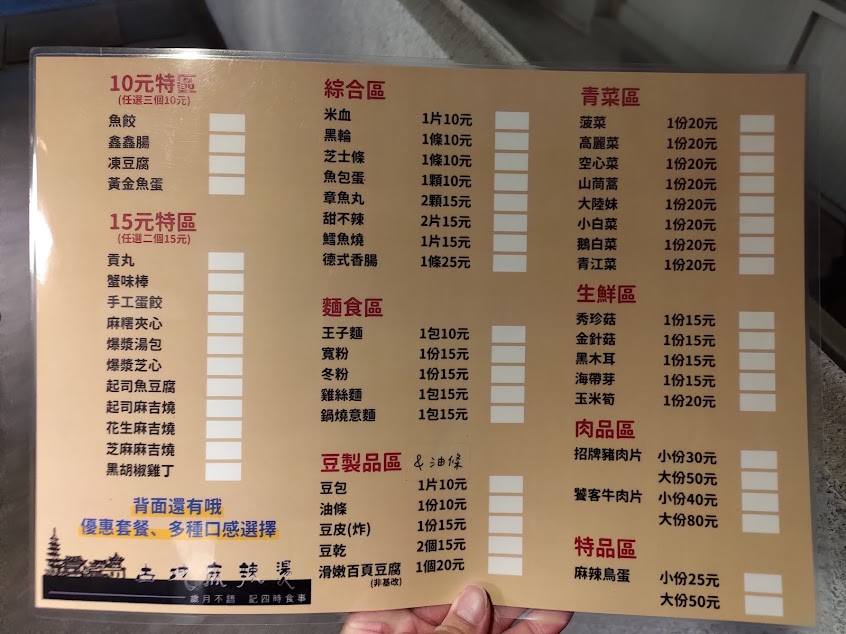 10元特區
(任選三個10元)
魚餃
鑫鑫腸
凍豆腐
黃金魚蛋
15元特區
(任選二個15元)
貢丸
蟹味棒
手工蛋餃
麻糬夾心
爆漿湯包
爆漿芝心
起司魚豆腐
起司麻吉燒
花生麻吉燒
芝麻麻吉燒
黑胡椒雞丁
背面還有哦
優惠套餐、多種口感選擇
古城麻辣燙
歲月不語 記四時食事
綜合區
米血 1片10元
黑輪 1條10元
芝士條 1條10元
魚包蛋 1顆10元
章魚丸 2顆15元
甜不辣 2片15元
鱈魚燒 1片15元
德式香腸 1條25元
麵食區
王子麵 1包10元
寬粉 1份15元
冬粉 1份15元
雞絲麵 1包15元
鍋燒意麵 1包15元
豆製品區 & 油條
豆包 1片10元
油條 1份10元
豆皮(炸) 1份15元
豆乾 2個15元
滑嫩百頁豆腐 1個20元
(非基改)
青菜區
菠菜 1份20元
高麗菜 1份20元
空心菜 1份20元
山茼蒿 1份20元
大陸妹 1份20元
小白菜 1份20元
鵝白菜 1份20元
青江菜 1份20元
生鮮區
秀珍菇 1份15元
金針菇 1份15元
黑木耳 1份15元
海帶芽 1份15元
玉米筍 1份20元
肉品區
招牌豬肉片 小份30元
大份50元
饕客牛肉片 小份40元
大份80元
特品區
麻辣鳥蛋 小份25元
大份50元